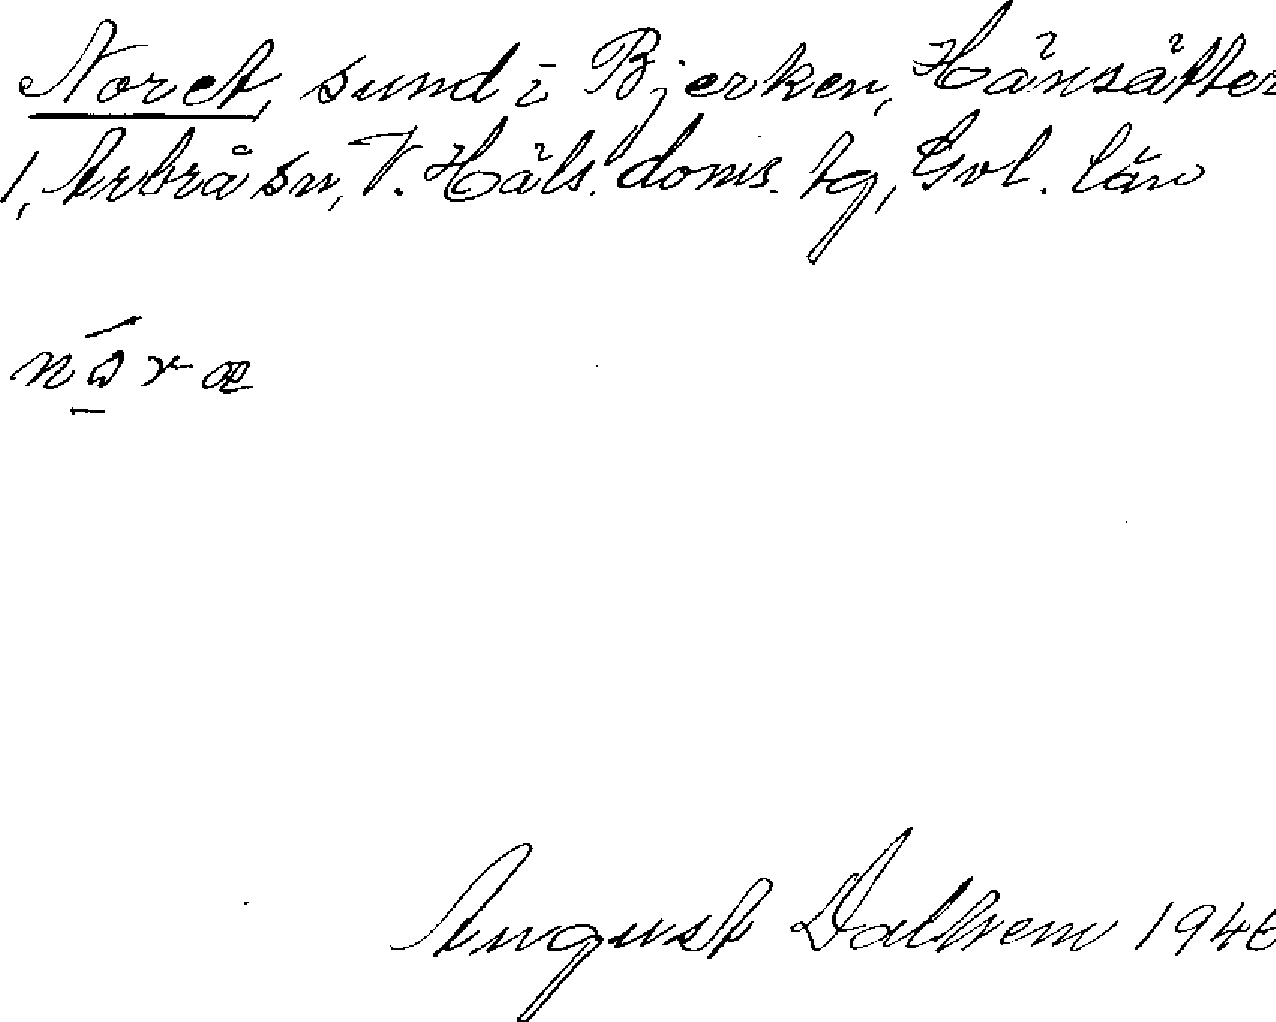 Noret, sund i Bjerken, Hänsätter
1, Arbrå sn, V. Häls. doms. tg, Gvl. län
August Dalhem 1946